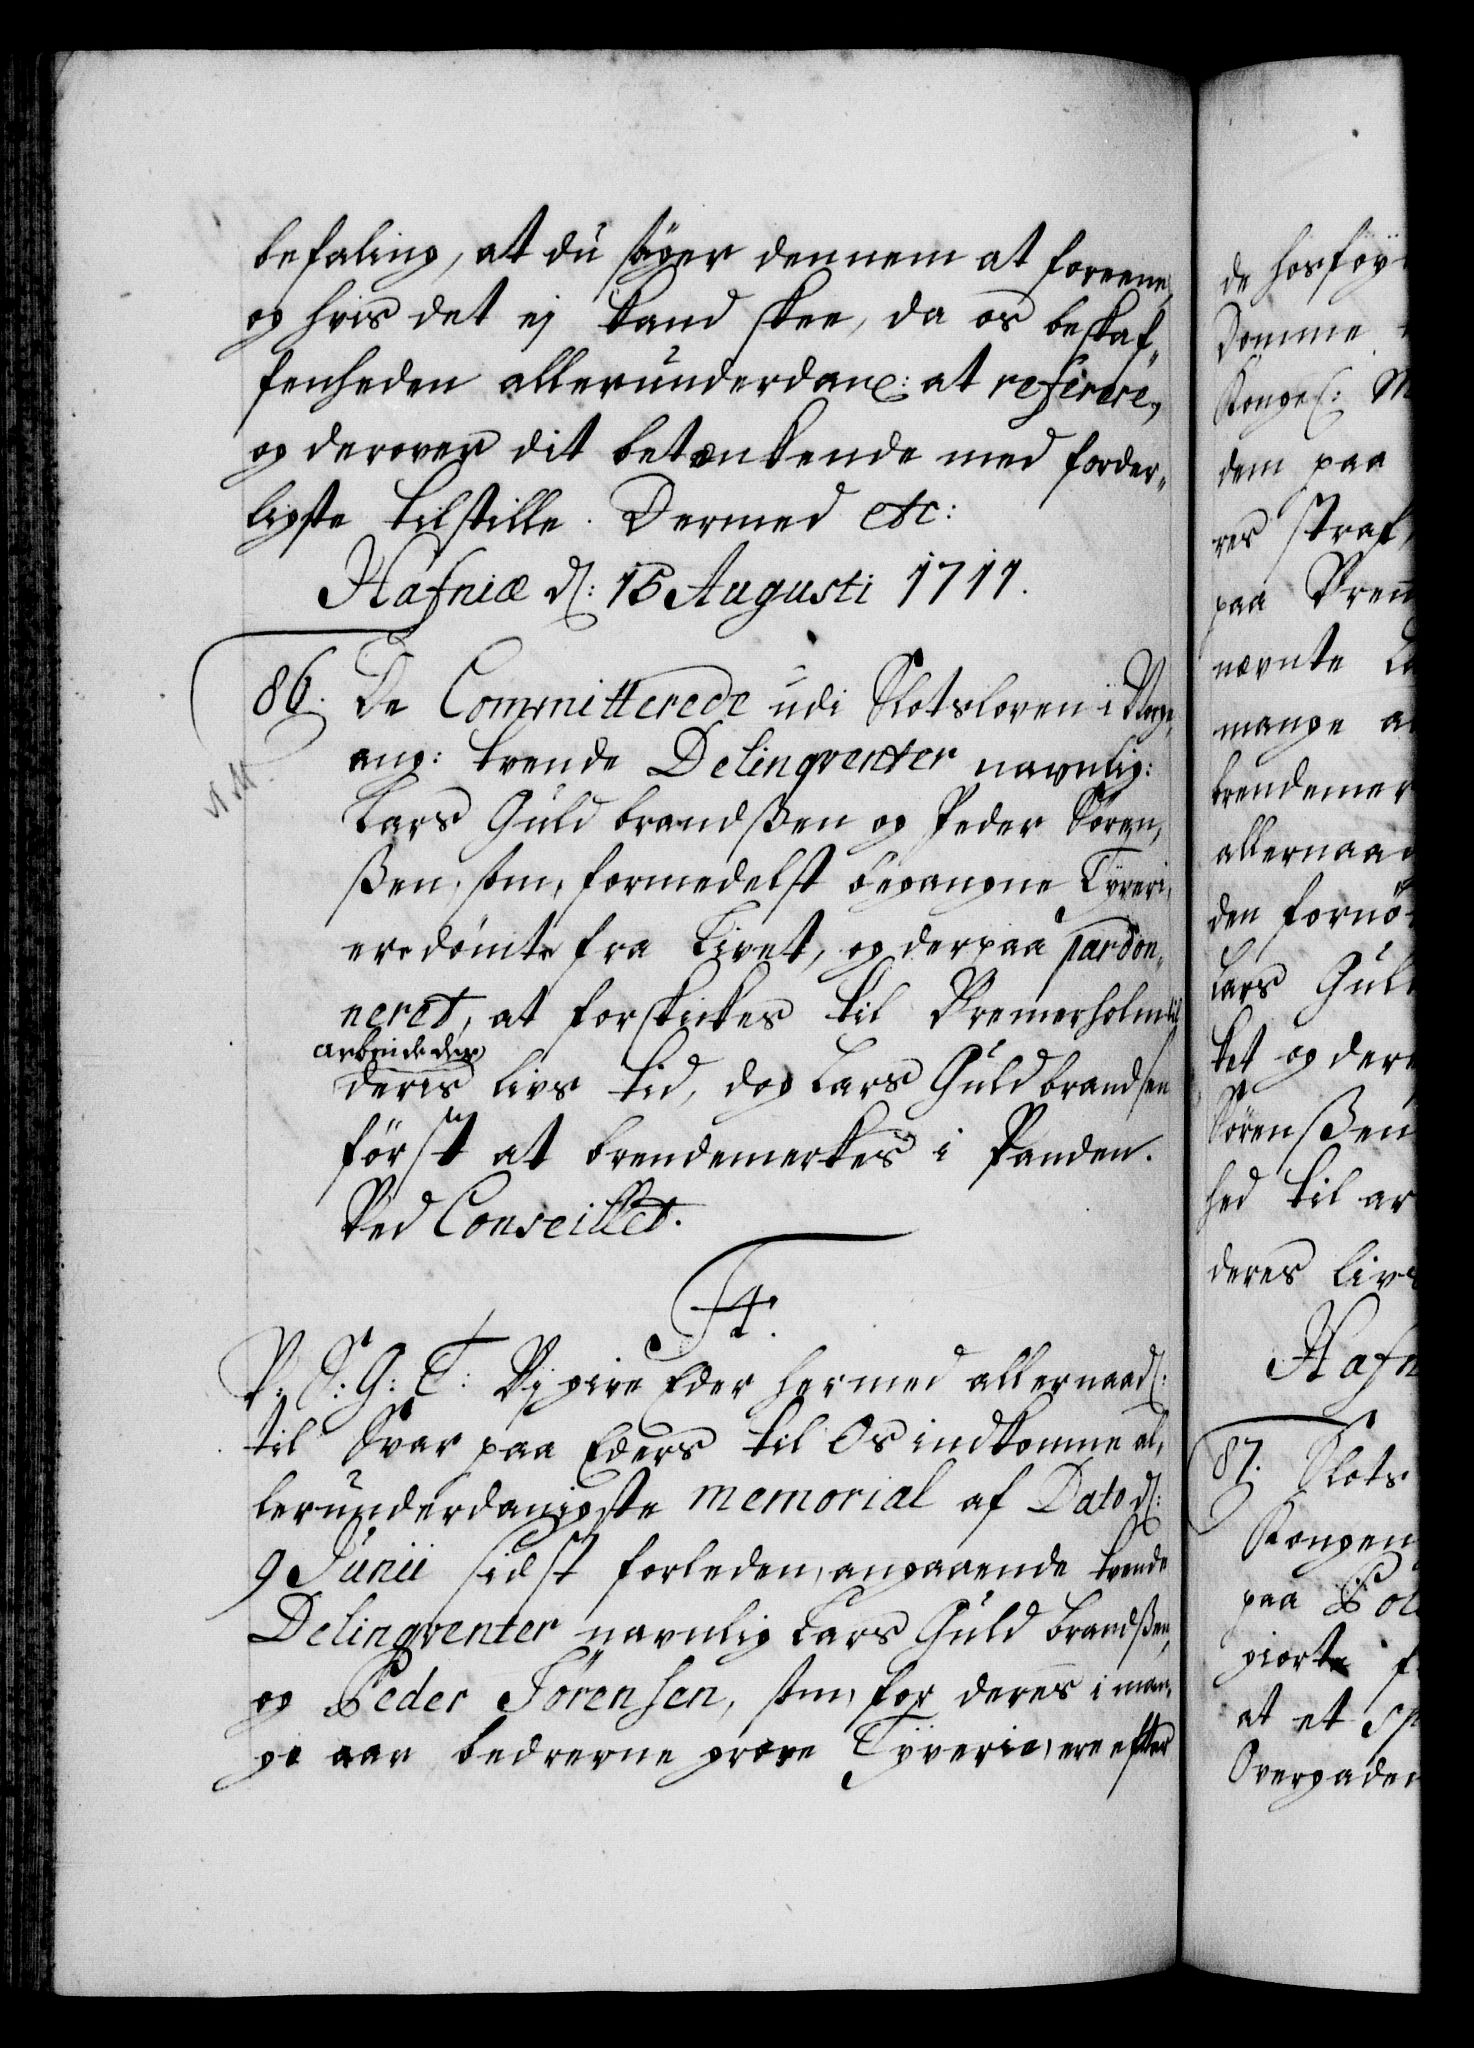 befaling, at du søger dennem at foreene,
og hvis det ej kand skee, da os beskaf-
fenheden allerunderdanl: at referere,
og derover dit betænkende med forder-
ligste tilstille. Dermed etc:
Hafniæ d: 15 Augusti 1711.
86. De Committerede udi Slotsloven i Norge,
ang: tvende Delinqventer navnlig:
Lars Guldbrandßen og Peder Søren-
ßen, som, formedelst begangne Tyveri,
ere dømte fra Livet, og derpaa pardon-
neret, at forskikes til Bremerholm til
arbeide der
deris livs tid, dog Lars Guldbrandsen
først at brendemerkes i Panden.
Ved Conseillet.
F4.
V: S: G: T: Vi give Eder hermed allernaadl:
til Svar paa Eders til Os indkomne al-
lerunderdanigste memorial af Dato d:
9 Junii sidst forleden, angaaende tvende
Delinqventer navnlig Lars Guldbrandßen,
og Peder Sørensen, som, for deres i man-
ge aar bedrevne grove Tyverie, ere efter
de hosføy
Domme
Kongel: M
dem paa
res straf,
paa Brem
nævnte La
mange a
brendemer
allernaad
den fornø
Lars Gul
ket og der
Sørenßen
hed til ar
deres livs
Hafn
87. Slots
Kongen
paa
giorte f
at et sp
Overgaden